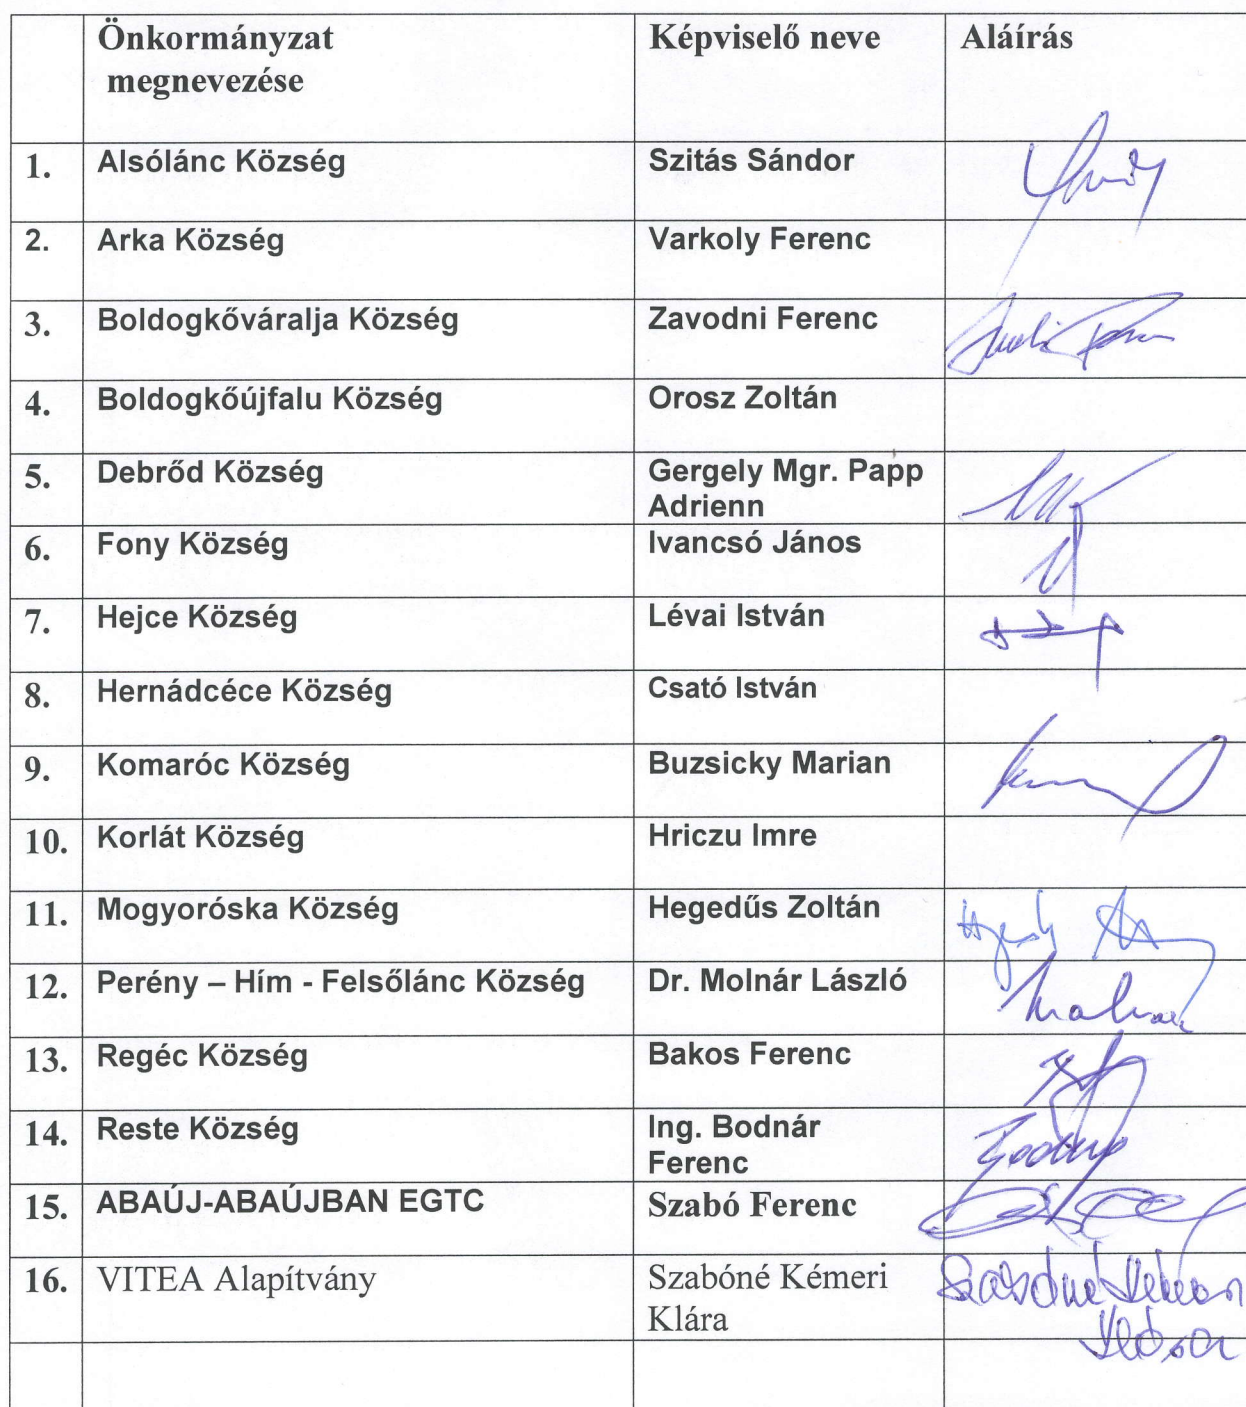 Önkormányzat megnevezése Képviselő neve Aláírás
1. Alsólánc Község Szitás Sándor
2. Arka Község Varkoly Ferenc
3. Boldogkőváralja Község Zavodni Ferenc
4. Boldogkőújfalu Község Orosz Zoltán
5. Debrőd Község Gergely Mgr. Papp Adrienn
6. Fony Község Ivancsó János
7. Hejce Község Lévai István
8. Hernádcéce Község Csató István
9. Komaróc Község Buzsicky Marian
10. Korlát Község Hriczu Imre
11. Mogyoróska Község Hegedűs Zoltán
12. Perény – Hím - Felsőlánc Község Dr. Molnár László
13. Regéc Község Bakos Ferenc
14. Reste Község Ing. Bodnár Ferenc
15. ABAÚJ-ABAÚJBAN EGTC Szabó Ferenc
16. VITEA Alapítvány Szabóné Kémeri Klára